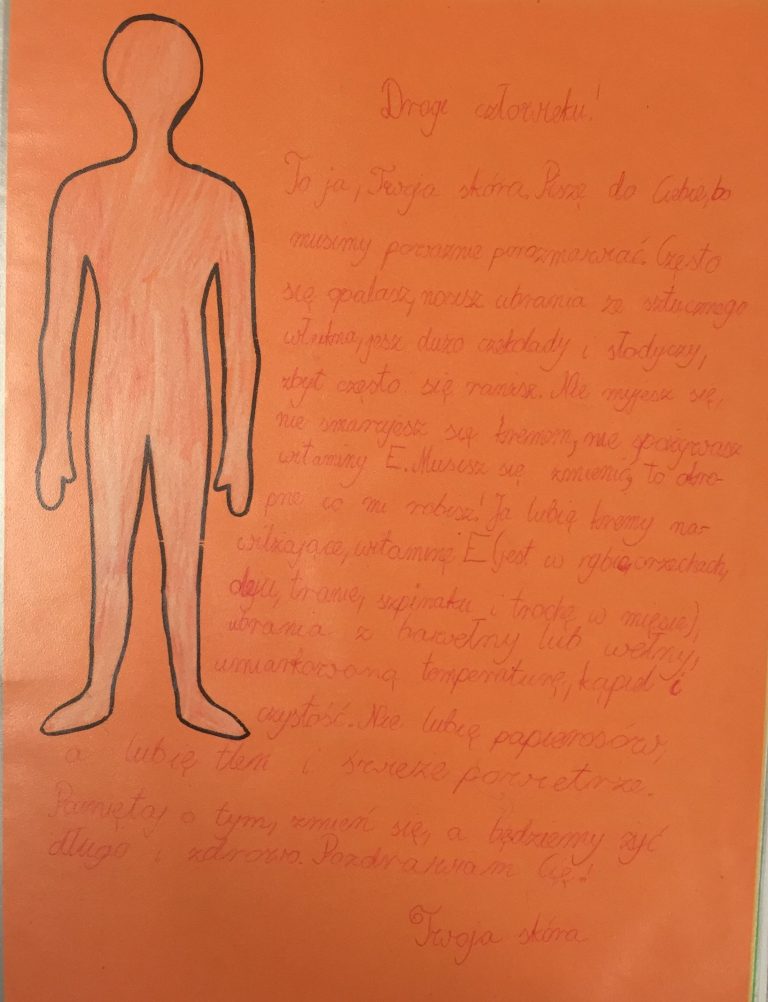 Drogi człowieku!
To ja, Twoja skóra. Piszę do Ciebie, bo
musimy poważnie porozmawiać. Często
się opalasz, nosisz ubrania ze sztucznego
włókna, jesz dużo czekolady i słodyczy,
zbyt często się ranisz. Nie myjesz się,
nie smarujesz się kremem, nie spożywasz
witaminy E. Musisz się zmienić, to okro-
pne co mi robisz! Ja lubię kremy na-
wilżające, witaminę E (jest w rybie, orzechach,
oleju, tranie, szpinaku i trochę w mięsie),
ubrania z bawełny lub wełny,
umiarkowaną temperaturę, kąpiel i
czystość. Nie lubię papierosów,
a lubię tlen i świeże powietrze.
Pamiętaj o tym, zmień się, a będziemy żyć
długo i zdrowo. Pozdrawiam Cię!
Twoja skóra